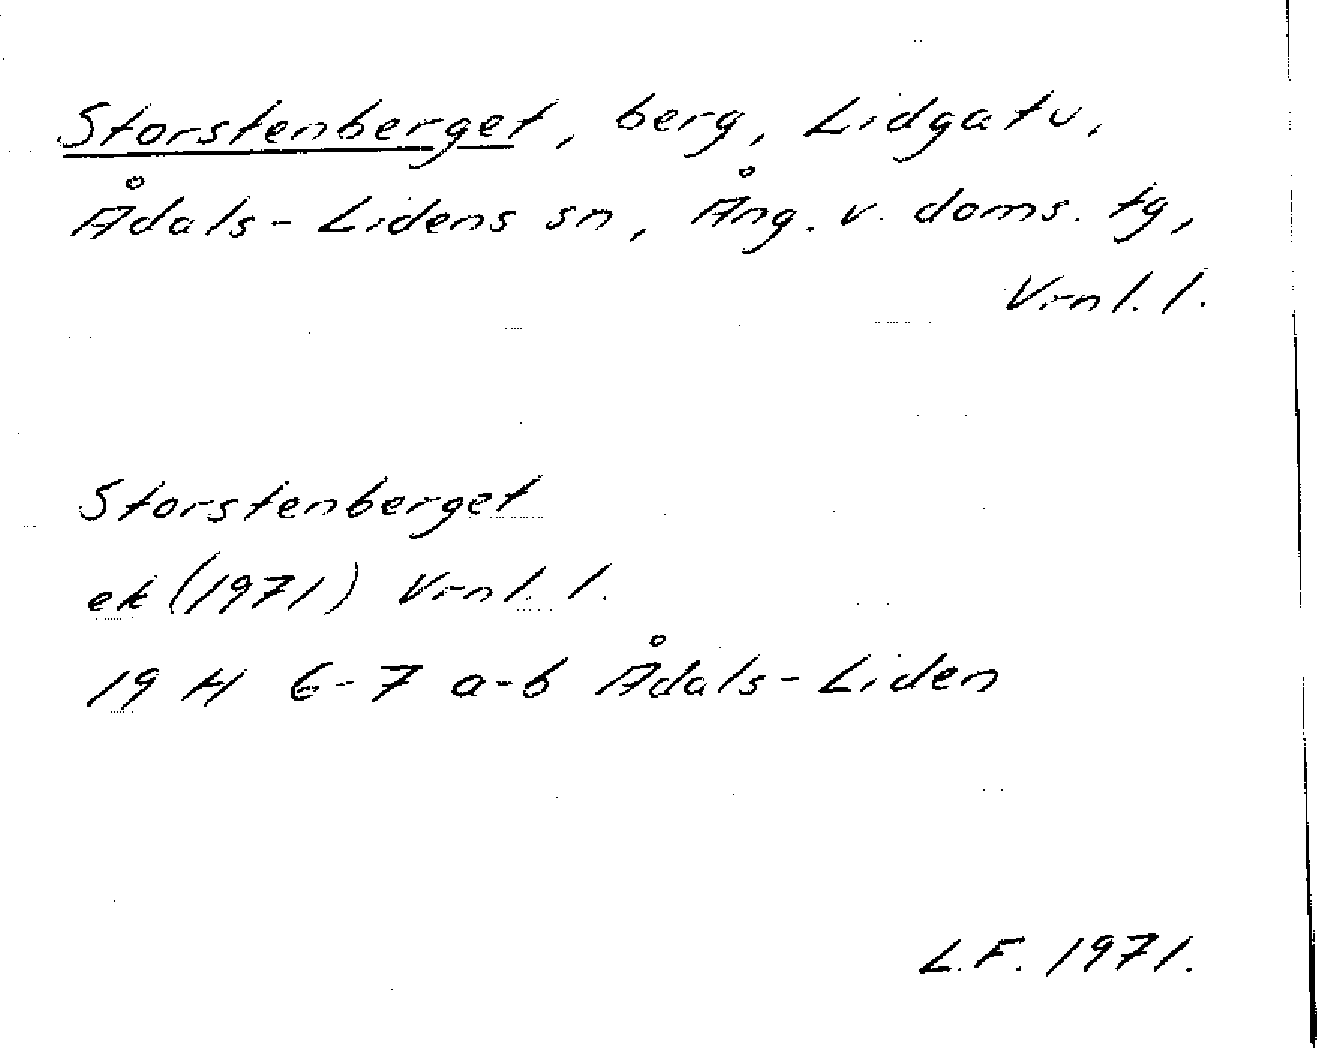 Storstenberget, berg, Lidgatu,
Ådals-Lidens sn, Ång. v. doms. tg,
Vrnl. l.
Storstenberget
ek (1971) Vrnl. l.
19 H 6-7 a-b Ådals-Liden
L.F. 1971.